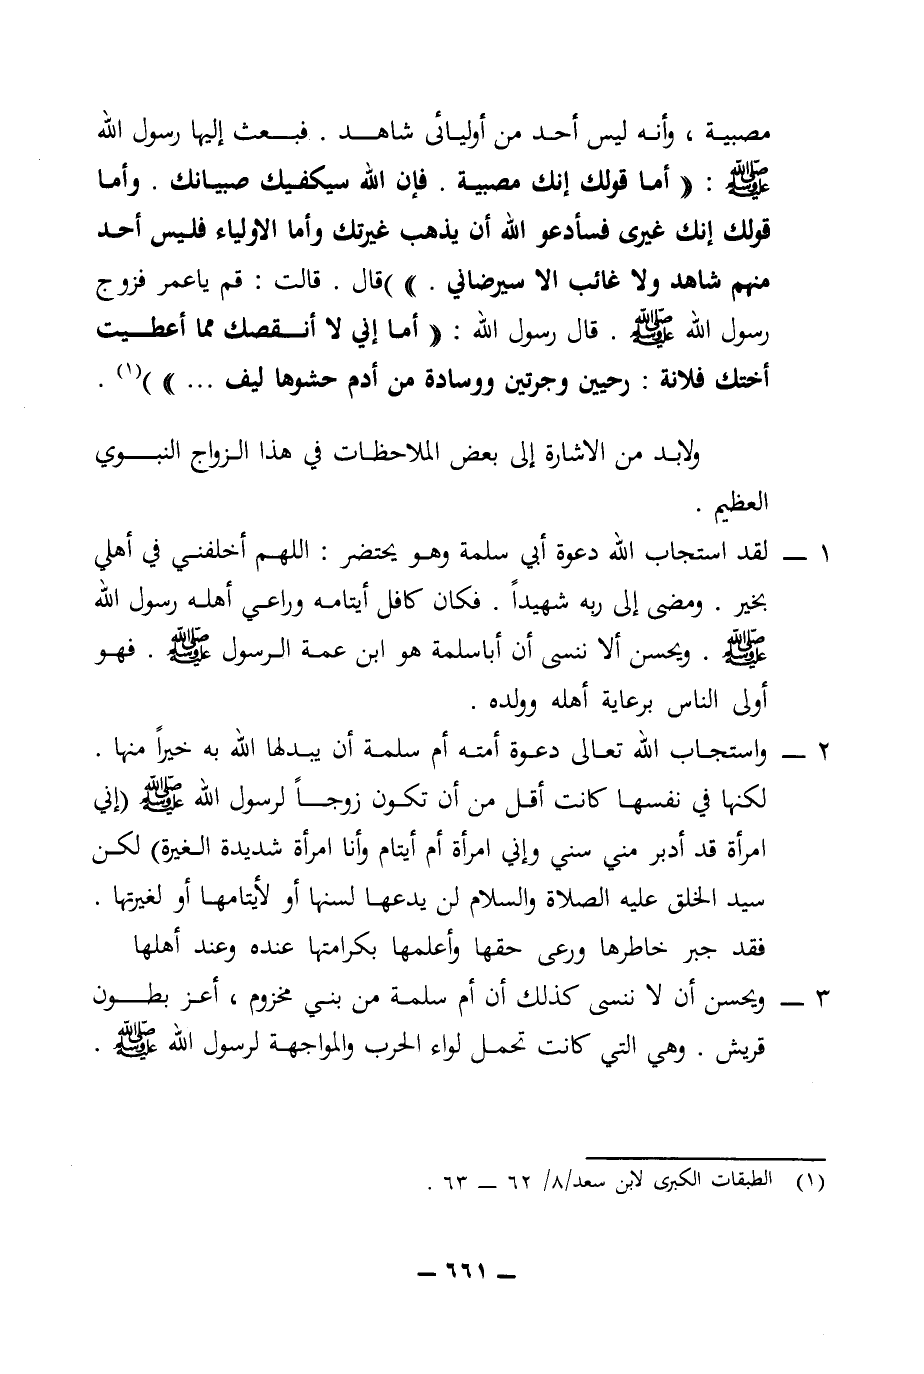 مصبية ، وأنه ليس أحد من أوليائى شاهد . فبعث إليها رسول الله
ﷺ : ( أما قولك إنك مصبية . فإن الله سيكفيك صبيانك . وأما
قولك إنك غيرى فسأدعو الله أن يذهب غيرتك وأما الاولياء فليس أحد
منهم شاهد ولا غائب الا سيرضاني . ) )قال . قالت : قم ياعمر فزوج
رسول الله ﷺ . قال رسول الله : ( أما إني لا أنقصك مما أعطيت
أختك فلانة : رحيين وجرتين ووسادة من أدم حشوها ليف ... ) )(١) .
ولابد من الاشارة إلى بعض الملاحظات في هذا الزواج النبوي
العظيم .
١ ــ لقد استجاب الله دعوة أبي سلمة وهو يحتضر : اللهم أخلفني في أهلي
بخير . ومضى إلى ربه شهيداً . فكان كافل أيتامه وراعي أهله رسول الله
ﷺ . ويحسن ألا ننسى أن أباسلمة هو ابن عمة الرسول ﷺ . فهو
أولى الناس برعاية أهله وولده .
٢ ــ واستجاب الله تعالى دعوة أمته أم سلمة أن يبدلها الله به خيراً منها .
لكنها في نفسها كانت أقل من أن تكون زوجاً لرسول الله ﷺ (إني
امرأة قد أدبر مني سني وإني امرأة أم أيتام وأنا امرأة شديدة الغيرة) لكن
سيد الخلق عليه الصلاة والسلام لن يدعها لسنها أو لأيتامها أو لغيرتها .
فقد جبر خاطرها ورعى حقها وأعلمها بكرامتها عنده وعند أهلها
٣ ــ ويحسن أن لا ننسى كذلك أن أم سلمة من بني مخزوم ، أعز بطون
قريش . وهي التي كانت تحمل لواء الحرب والمواجهة لرسول الله ﷺ .
(١) الطبقات الكبرى لابن سعد/٨/ ٦٢ ــ ٦٣ .
ــ ٦٦١ ــ